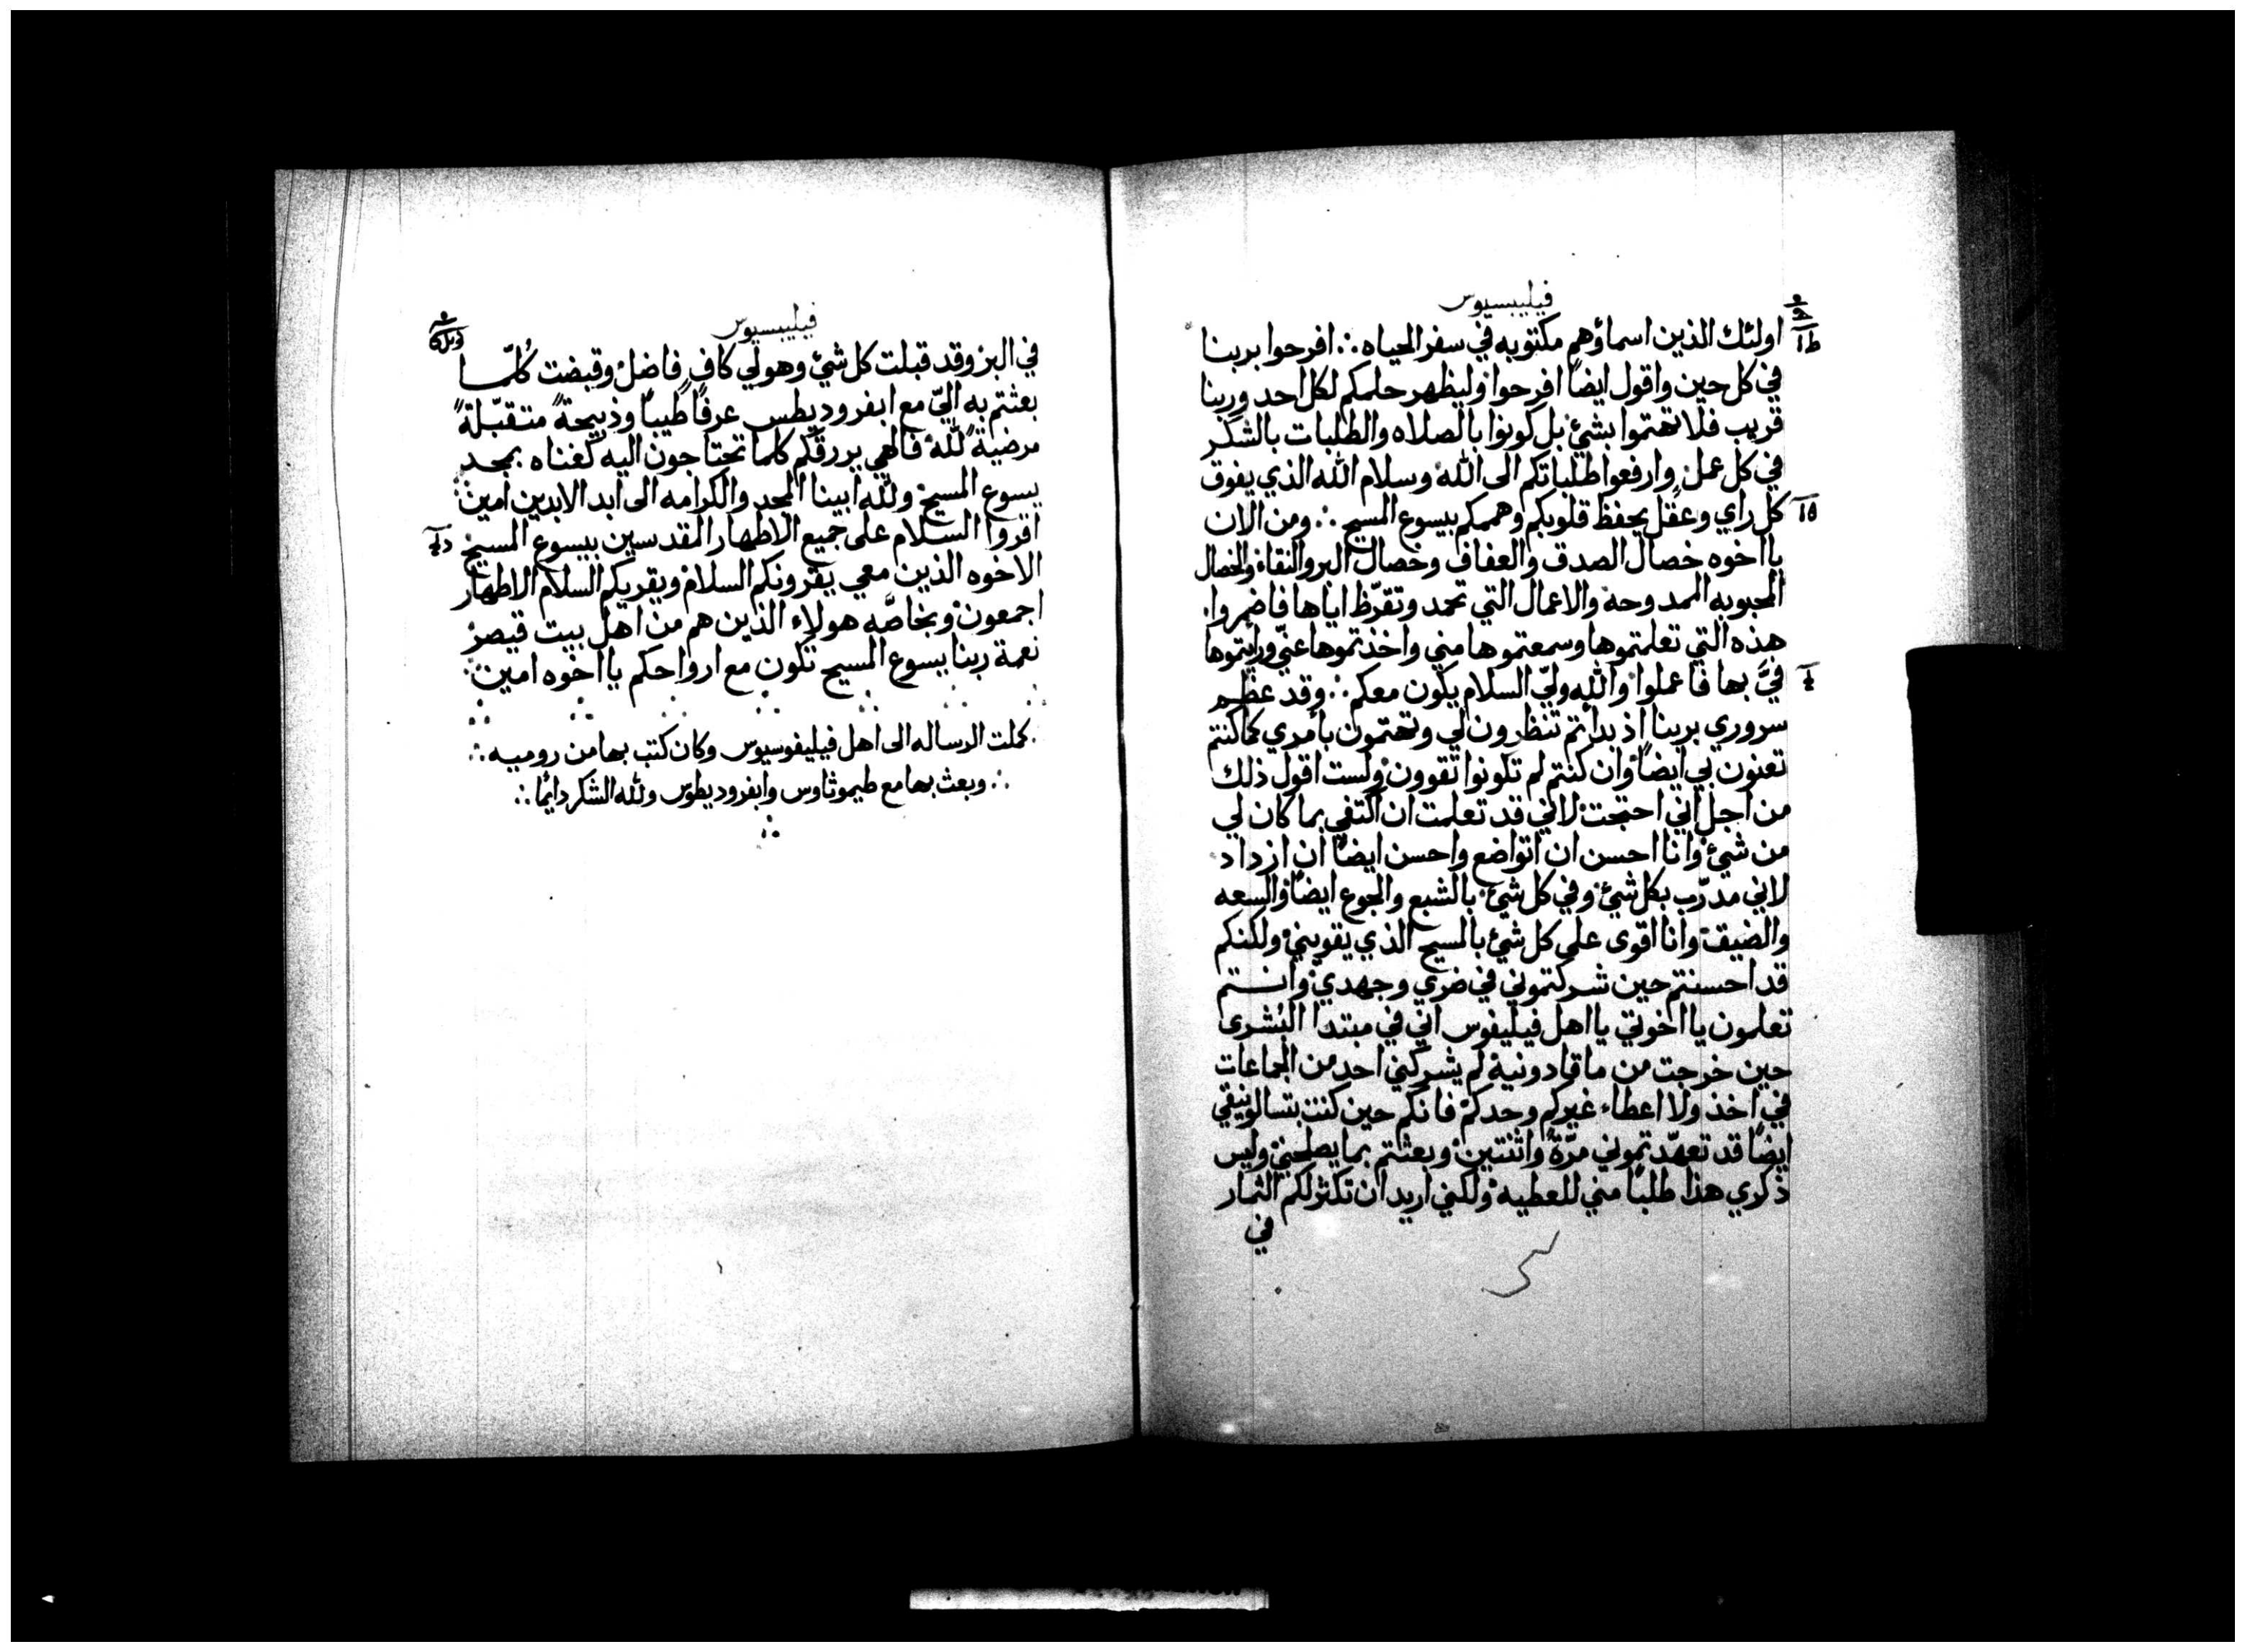 فيليبسيوس
اولئك الذين اسماؤهم مكتوبه في سفر الحياه ∴ افرحوا بربنا
في كل حين واقول ايضاً افرحوا وليظهر حلمكم لكل احد وربنا
قريب فلا تهتموا بشيٍ بل كونوا بالصلاه والطلبات بالشكر
في كل عمل وارفعوا طلباتكم الى الله وسلام الله الذي يفوق
كل راي وعقل يحفظ قلوبكم وهممكم بيسوع المسيح ∴ ومن الان
يا اخوه خصال الصدق والعفاف وخصال البر والنقاء والخصال
المحبوبه الممدوحة والاعمال التي تحمد وتقرّظ اياها فاضمروا
هذه التي تعلمتموها وسمعتموها مني واخذتموها عنّي ورايتموها
فيَّ بها فاعملوا والله وليّ السلام يكون معكم ∴ وقد عظم
سروري بربنا اذ بداتم تنظرون لي وتهتمون بأمري كما كنتم
تعنون بي ايضاً وان كنتم لم تكونوا تقوون ولست اقول ذلك
من اجل اني احتجت لاني قد تعلمت ان اكتفي بما كان لي
من شيٍ وانا احسن ان اتواضع واحسن ايضاً ان ازداد
لاني مدرّب بكل شيٍ وفي كل شيٍ بالشبع والجوع ايضاً والسعه
والضيق وانا اقوى على كل شيٍ بالمسيح الذي يقويني ولكنكم
قد احسنتم حين شركتموني في ضري وجهدي وانتم
تعلمون يا اخوتي يا اهل فيليفوس اني في مبتدا البشرى
حين خرجت من ماقادونية لم يشركني احد من الجماعات
في اخذ ولا اعطاء غيركم وحدكم فانكم حين كنت بتسالونيقي
ايضاً قد تعهّدتموني مرّة واثنتين وبعثتم بما يصلحني وليس
ذكري هذا طلباً مني للعطيه ولكني اريد ان تكثر لكم الثمار
في
فيليبسيوس
في البر وقد قبلت كل شيٍ وهو لي كافٍ فاضل وقبضت كُلمّا
بعثتم به اليّ مع ابفروديطس عرفاً طيباً وذبيحةً متقبّلةً
مرضيةً لله فالهي يرزقكم كلما تحتاجون اليه كغناه بمجد
يسوع المسيح ولله ابينا المجد والكرامه الى ابد الابدين امين
اقروا السلام على جميع الاطهار المقدسين بيسوع المسيح
الاخوه الذين معي يقرونكم السلام ويقريكم السلام الاطهار
اجمعون وبخاصّه هولاء الذين هم من اهل بيت قيصر
نعمة ربنا يسوع المسيح تكون مع ارواحكم يا اخوه امين
كملت الرساله الى اهل فيليفوسيوس وكان كتب بها من روميه ∴
∴ وبعث بها مع طيموثاوس وابفروديطوس ولله الشكر دايمًا ∴